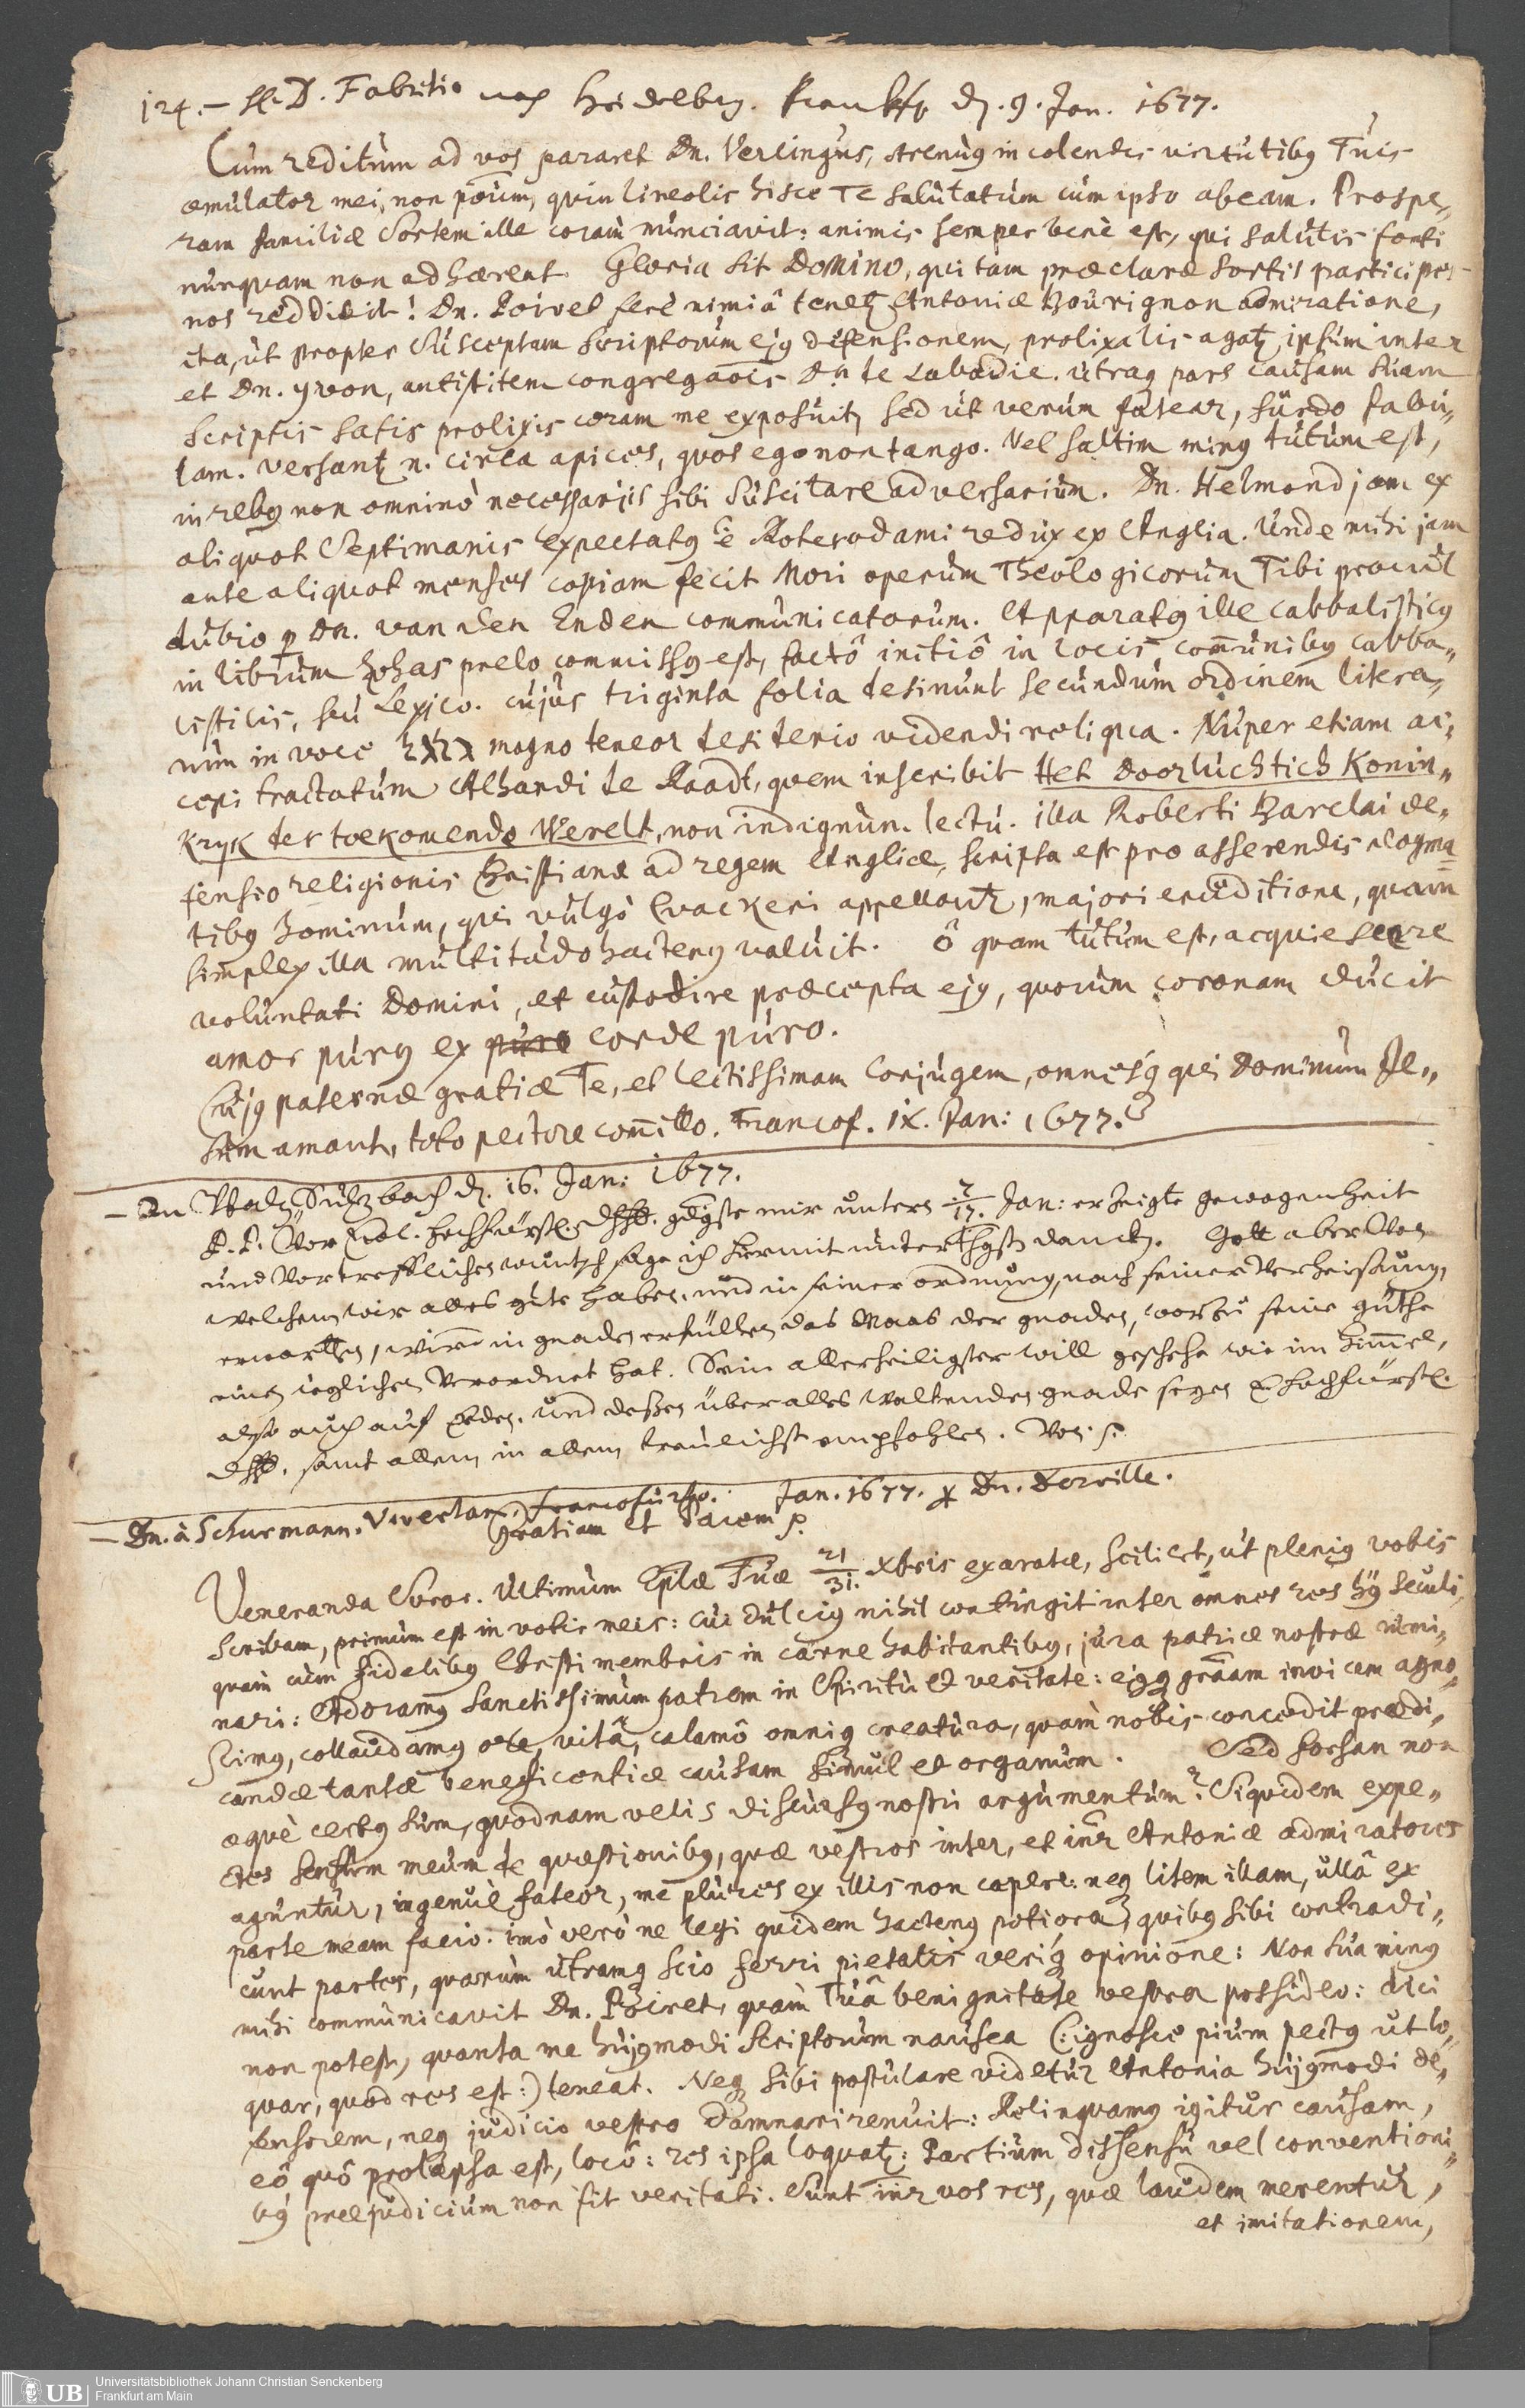 124. – H. D. Fabritio nach Heidelberg. Frankf. d. 9. Jan. 1677.
Cum reditum ad vos pararet Dn. Verlingus, strenuus in colendis virtutibus Tuis
æmulator mei, non poenitet, quin lineolis hisce Te salutatum cum ipso abeam. Prospe„
ram familiæ sortem ille coram nunciavit: animis semper benè est, qui salutis fonti
nunquam non adhærent. Gloria sit Domino, qui tam præclaræ sortis participes
nos reddidit! Dn. Poiret ferè nimiâ tenetur Antoniæ Bourignon admiratione,
ita, ut propter susceptam scriptorum ejus defensionem, prolixa lis agatur ipsum inter
et Dn. Yvon, antistitem congregaōis Dn de Labadie. utraq pars causam suam
scriptis satis prolixis coram me exposuit, sed ut verum fatear, surdo fabu„
lam. versantur n. circa apices, quos ego non tango. Vel saltim minus tutum est,
in rebus non omninò necessarijs sibi suscitare adversarium. Dn. Helmond jam ex
aliquot septimanis expectatus è Roterodami redux ex Anglia. Unde mihi jam
ante aliquot menses copiam fecit Mori operum Theologicorum Tibi procul
dubio p Dn. van den Enden communicatorum. Apparatus ille cabbalisticus
in librum Zohar prelo commissus est, factô initiô in locis com̄unibus cabba„
listicis, seu Lexico. cujus triginta folia desinunt secundum ordinem litera„
rum in voce magno teneor desiderio videndi reliqua. Nuper etiam ac„
cepi tractatum Alhardi de Raadt, quem inscribit Het doorluchtich Konin„
kryk der toekomende Werelt, non indignum lectu. illa Roberti Barclai de„
fensio religionis Christianæ ad regem Angliæ, scripta est pro asserendis dogma„
tibus hominum, qui vulgò Quackeri appellantur, majori eruditione, quam
simplex illa multitudo hactenus valuit. ô quam tutum est, acquiescere
voluntati Domini, et custodire præcepta ejus, quorum coronam ducit
amor purus ex puro corde puro.
Cujus paternæ gratiæ Te, et lectissimam Conjugem, omnesq qui Dominum Je„
sum amant, toto pectore com̄itto. Francof. IX. Jan: 1677.
– An Sultzbach d. 16. Jan: 1677.
P. P. Vor Ewl. Hochfürstl. Dhlt. gdgste mir unterm 7/17. Jan: erzeigte gewogenheit
und Vortrefflichen wuntsch sage ich hiermit unterthgst danck. Gott aber Von
welchem wir alles gute haben, und in seiner ordnung, nach seiner Verheißung,
erwarten, wird in gnaden erfüllen das Maas der gnaden, worzu seine güthe
einen ieglichen Verordnet hat. Sein allerheiligster will geschehe wie im him̄el,
also auch auf Erden. und deßen über alles waltenden gnade seyen E. Hochfürstl.
Dhlt. samt allem in allem treulichst empfohlen. Von. p.
– Dn. à Schurmann. Francofurto. Jan. 1677. p Dn. Dorville.
Gratiam et Pacem p.
Veneranda Soror. Ultimum Eplæ Tuæ 21/31. Xbris exaratæ, scilicet, ut plenius vobis
scribam, primum est in votis meis: cui dulcius nihil contingit inter omnes res hujus seculi,
quàm cum fidelibus Christi membris in carne habitantibus, jura patriæ nostræ rimi„
nari: Adoramus sanctissimum patrem in Spiritu et veritate: ejusq grāam invicem agno„
scimus, collaudamus ore, vitâ, calamô omniq creatura, quàm nobis concedit prædi„
candæ tantæ beneficentiæ causam simul et organum. Sed forsan non
æquè certus sum, quodnam velis discursus nostri argumentum? Siquidem expe„
ctes sensum meum de quæstionibus, quæ vestros inter, et intr Antoniæ admiratores
aguntur, ingenuè fateor, me plures ex illis non capere: neq litem illam, ullâ ex
parte meam facio: imò verò ne legi quidem hactenus potiora, quibus sibi contradi„
cunt partes, quarum utramq scio ferri pietatis verisq opinione: Non sua minus
mihi communicavit Dn. Poiret, quàm Tuâ benignitate vestra possideo: dici
non potest, quanta me hujusmodi scriptorum nausea (: ignosce pium pectus ut lo„
quar, quod res est :) teneat. Neq sibi postulare videtur Antonia hujusmodi de„
fensorem, neq judicio vestro damnari renuit: Relinquamus igitur causam,
eô quô prolapsa est, locô: res ipsa loquatur: Partium dissensu vel conventioni„
bus præjudicium non fit veritati. Sunt intr vos res, quæ laudem merentur,
et imitationem,
Universitätsbibliothek Johann Christian Senckenberg
Frankfurt am Main
UB